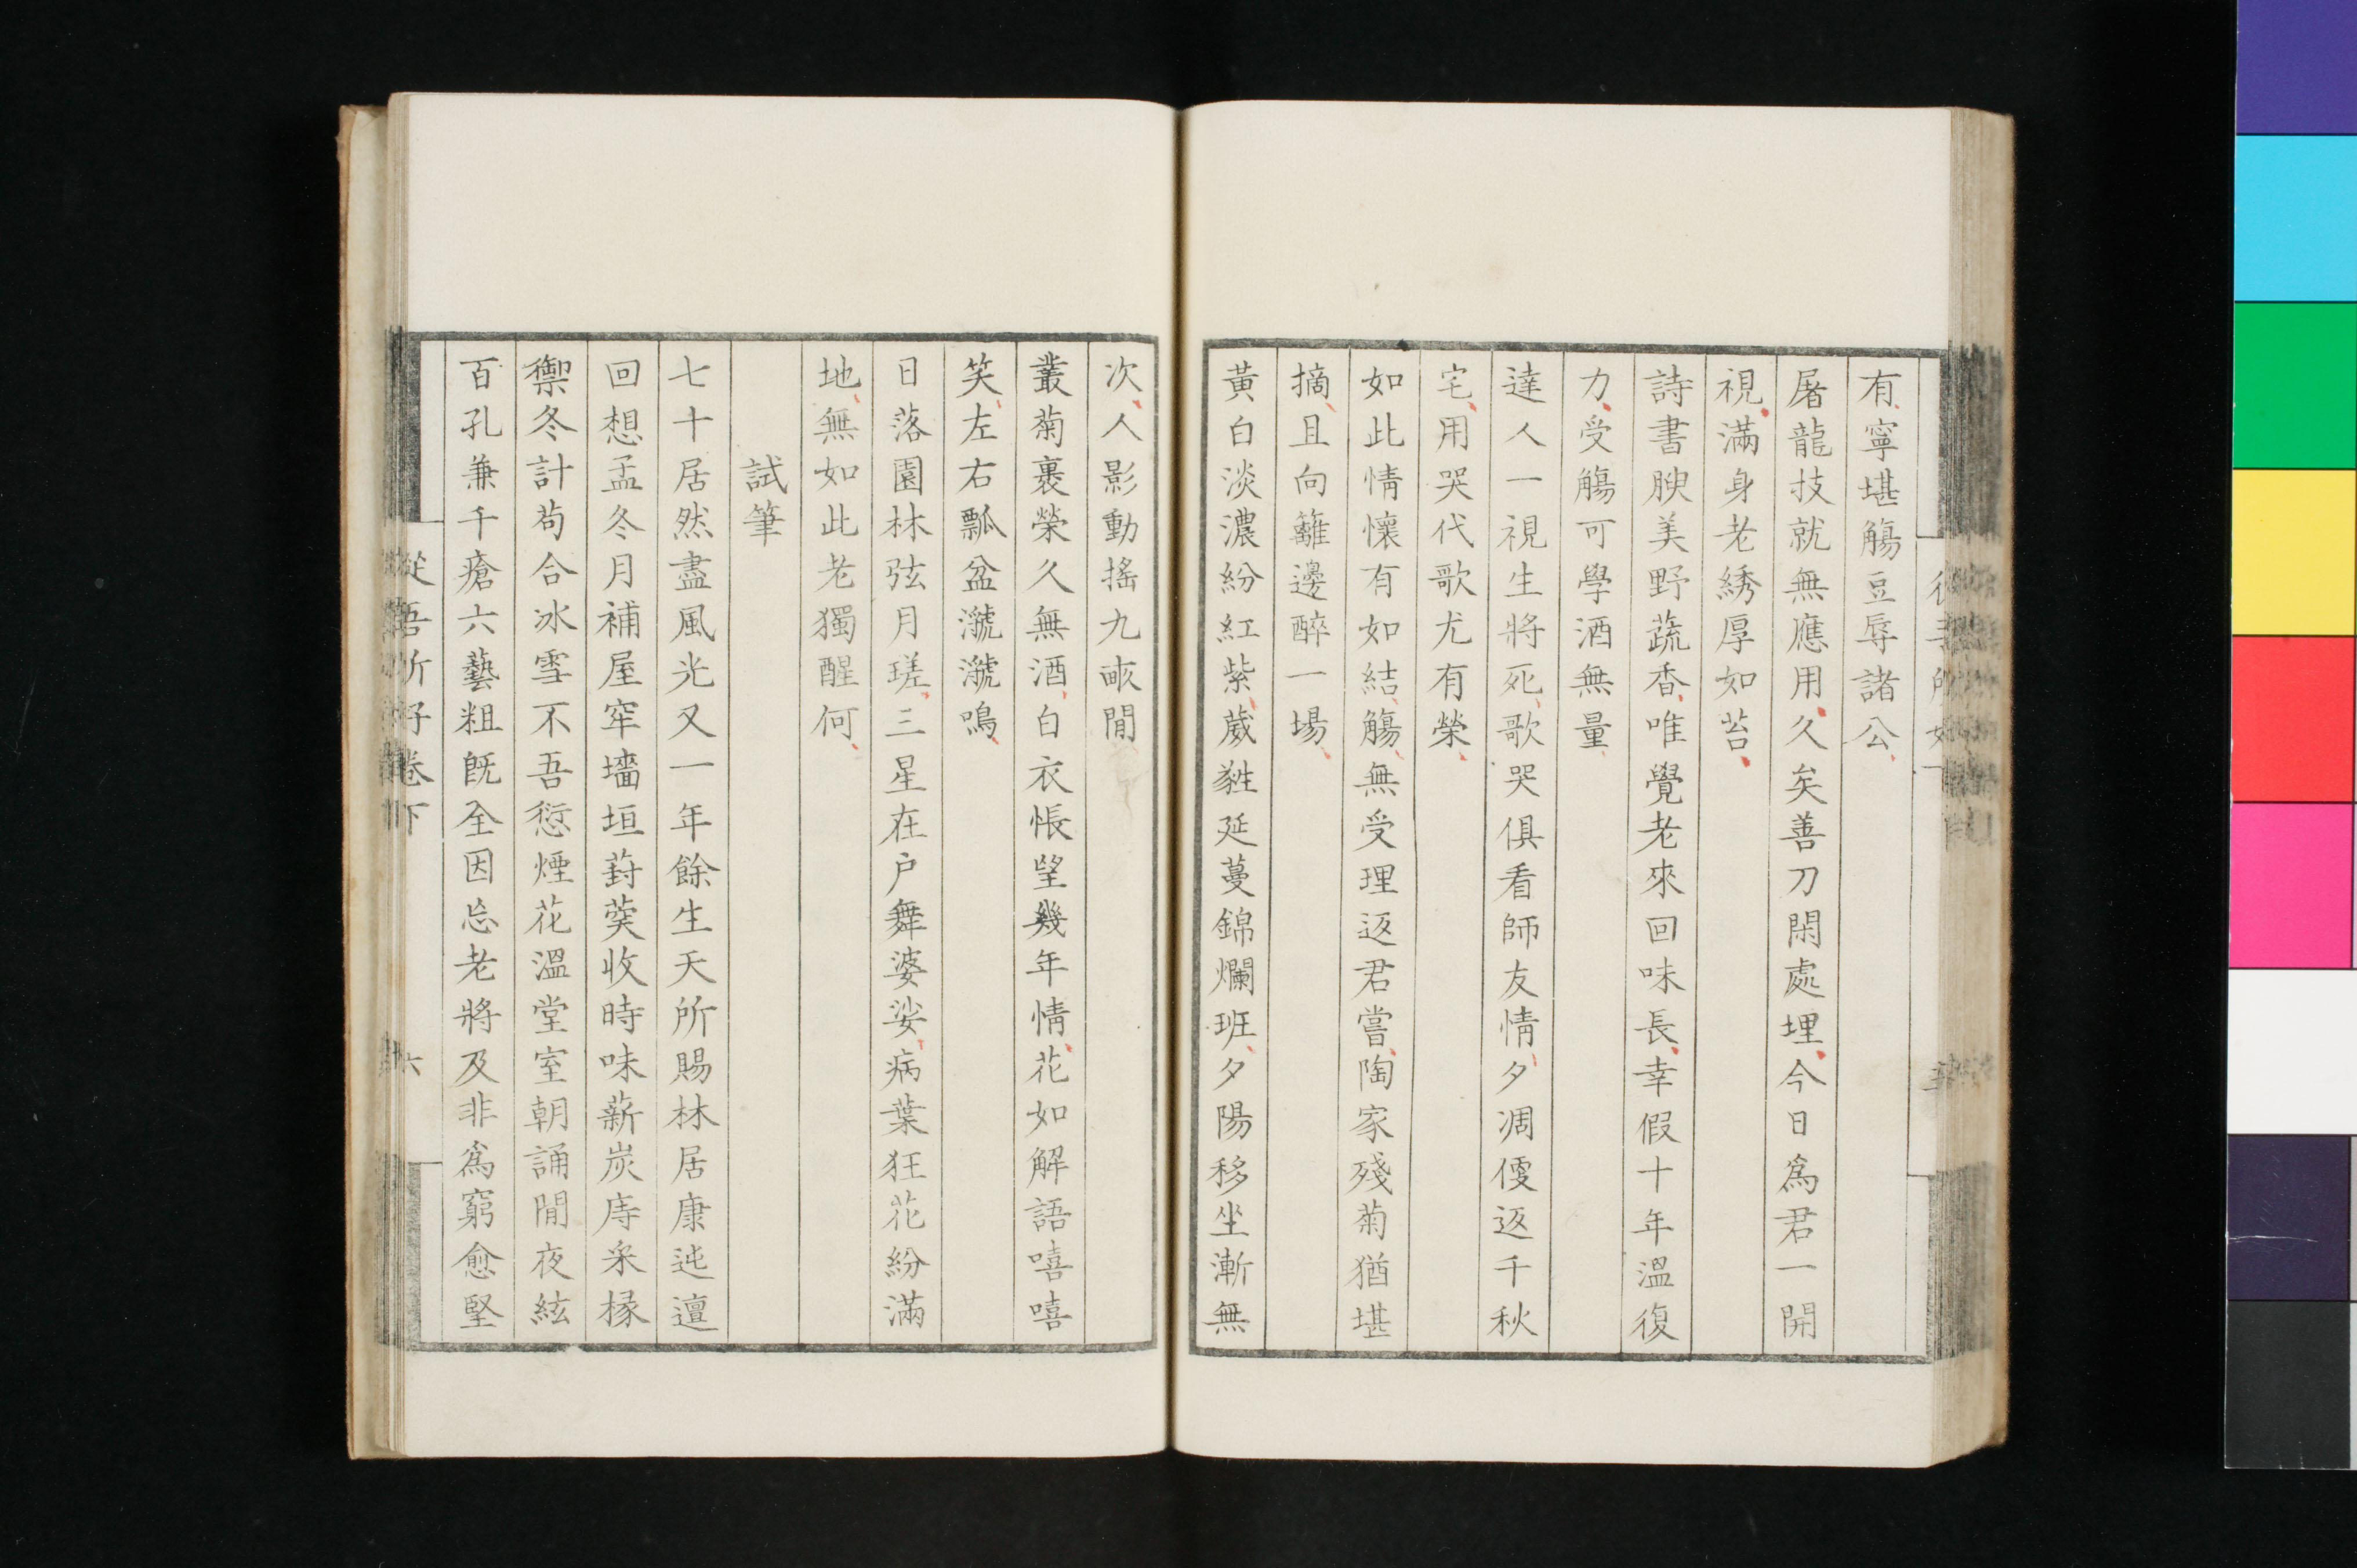 有寧堪觴豆辱諸公
屠龍技就無應用久矣善刀閑處埋今日爲君一開
視滿身老綉厚如苔
詩書腴美野蔬香唯覺老來回味長幸假十年溫復
力受觴可學酒無量
達人一視生將死歌哭俱看師友情夕凋優返千秋
宅用哭代歌尤有榮
如此情懷有如結觴無受理返君嘗陶家殘菊猶堪
摘且向籬邊醉一場
黃白淡濃紛紅紫葳蕤延蔓錦爛班夕陽移坐漸無
次人影動搖九畹間
叢菊裏榮久無酒白衣悵望幾年情花如解語嘻嘻
笑左右瓢盆㶁㶁鳴
日落園林弦月瑳三星在户舞婆娑病葉狂花紛滿
地無如此老獨醒何
試筆
七十居然盡風光又一年餘生天所賜林居康迍邅
回想孟冬月補屋牢墻垣葑葵收時味薪炭庤采椽
禦冬計茍合冰雪不吾愆煙花溫堂室朝誦閒夜絃
百孔兼千瘡六藝粗既全因忘老將及非爲窮愈堅
從吾所好卷下
六